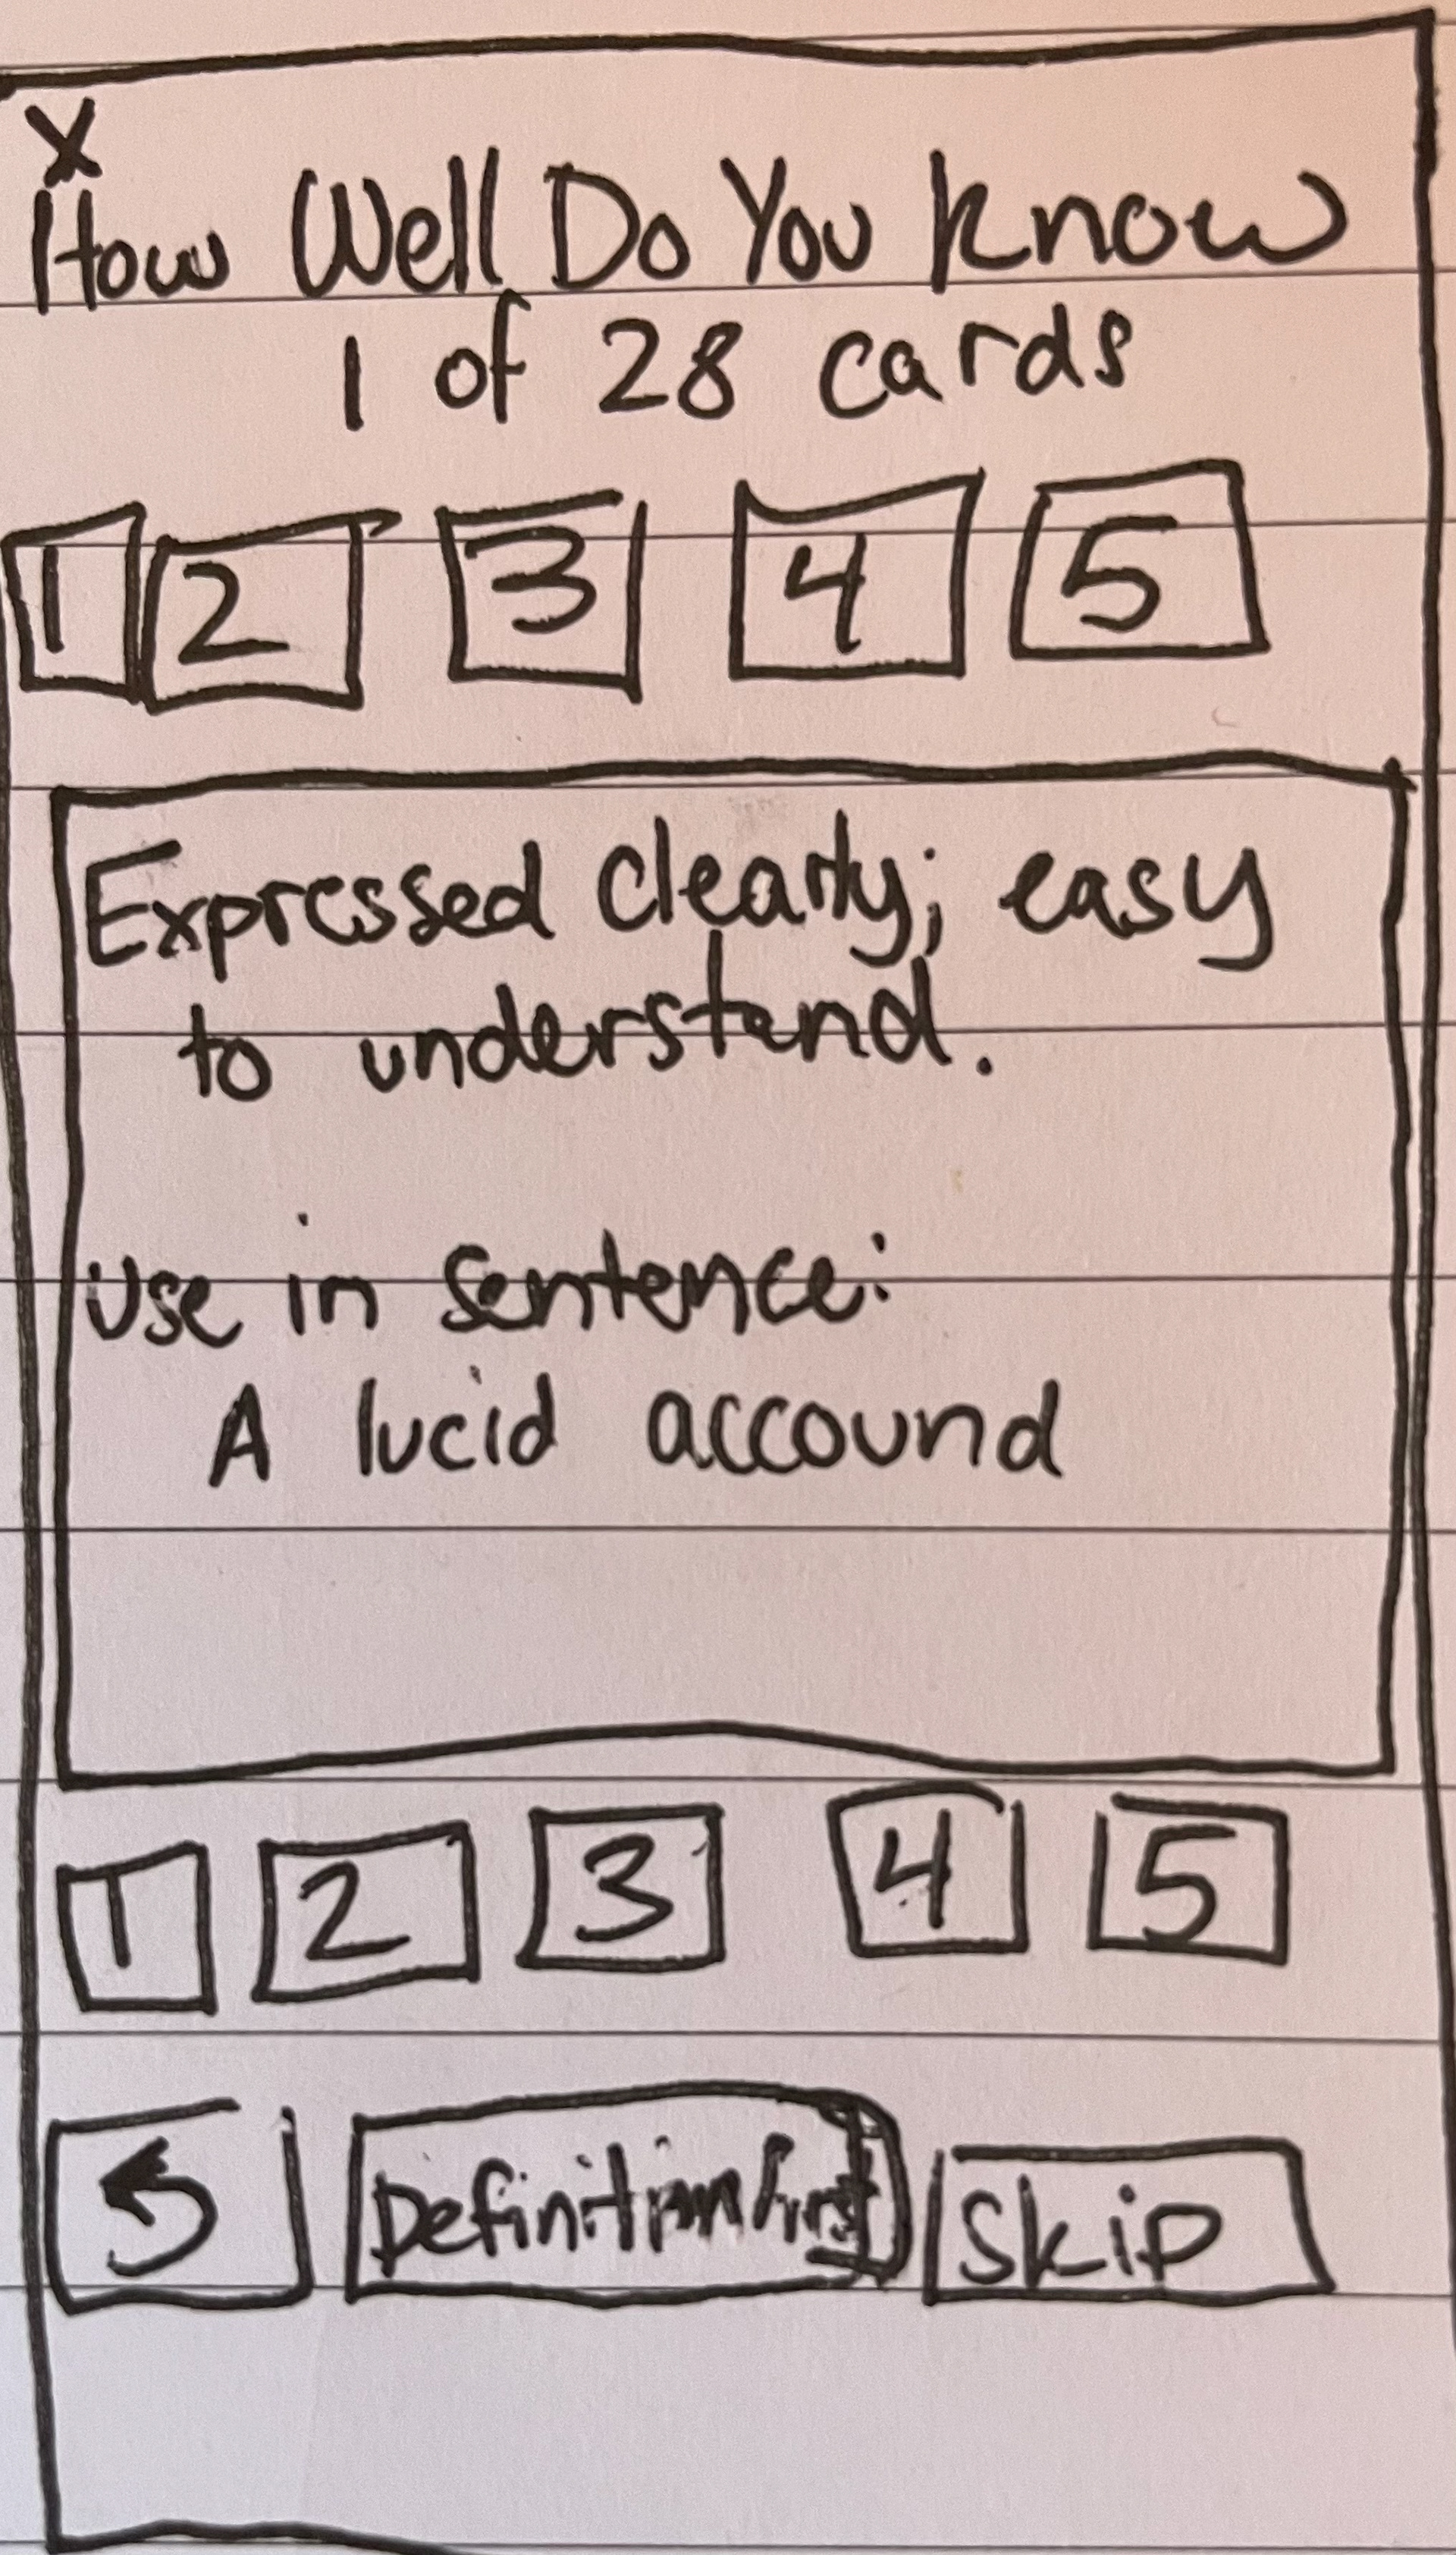 X
How Well Do You Know
1 of 28 cards
1 2 3 4 5
Expressed clearly; easy
to understand.
Use in sentence:
A lucid accound
1 2 3 4 5
Definition first Skip